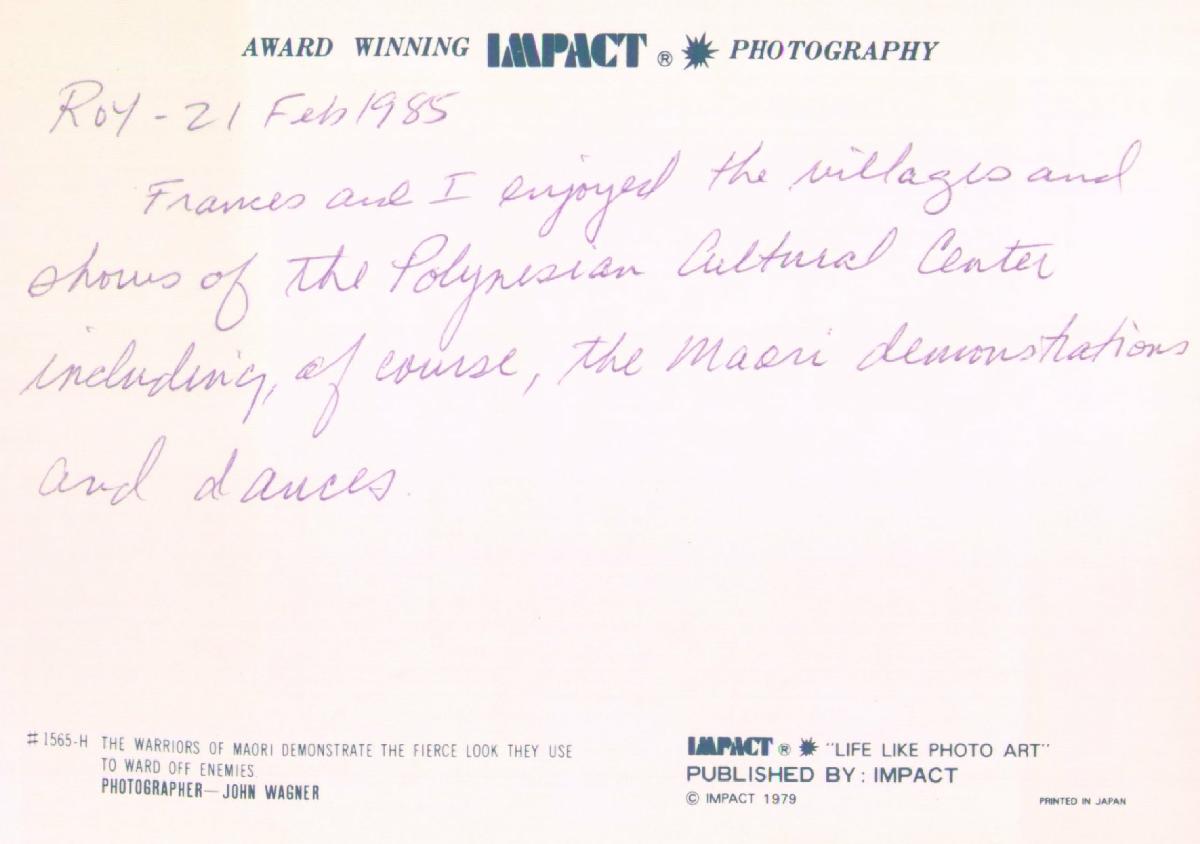 AWARD WINNING IMPACT ® PHOTOGRAPHY
Roy - 21 Feb 1985
Frances and I enjoyed the villages and
shows of the Polynesian Cultural Center
including, of course, the Maori demonstrations
and dances.
#1565-H THE WARRIORS OF MAORI DEMONSTRATE THE FIERCE LOOK THEY USE
TO WARD OFF ENEMIES.
PHOTOGRAPHER—JOHN WAGNER
IMPACT ® "LIFE LIKE PHOTO ART"
PUBLISHED BY: IMPACT
© IMPACT 1979
PRINTED IN JAPAN